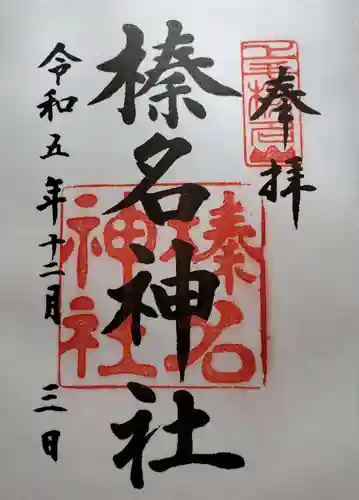 奉拝
榛名神社
令和五年十二月三日
榛名
神社